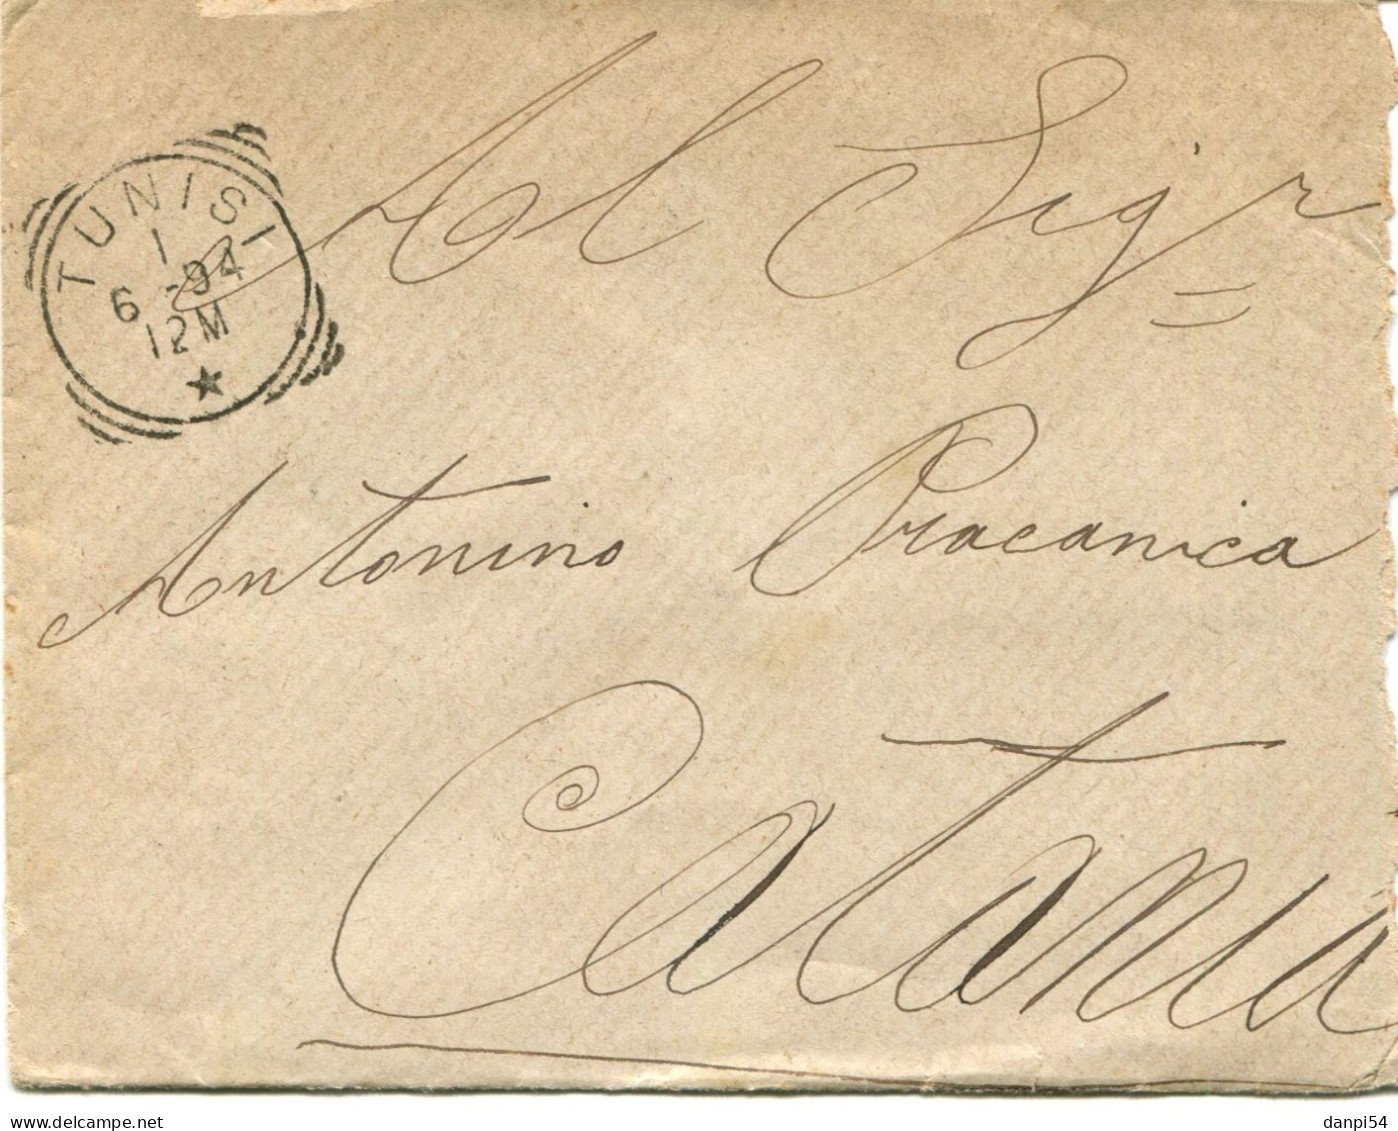 TUNISI
1
6 -94
12M
Al Sigr
Antonino Pracanica
Catania
www.delcampe.net
danpi54